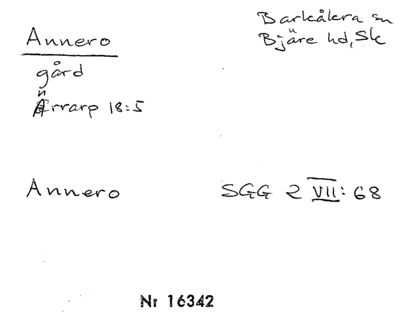 Annero
Barkåkra sn
Bjäre hd, Sk
gård
Ärrarp 18:5
Annero
SGG 2 VII: 68
Nr 16342